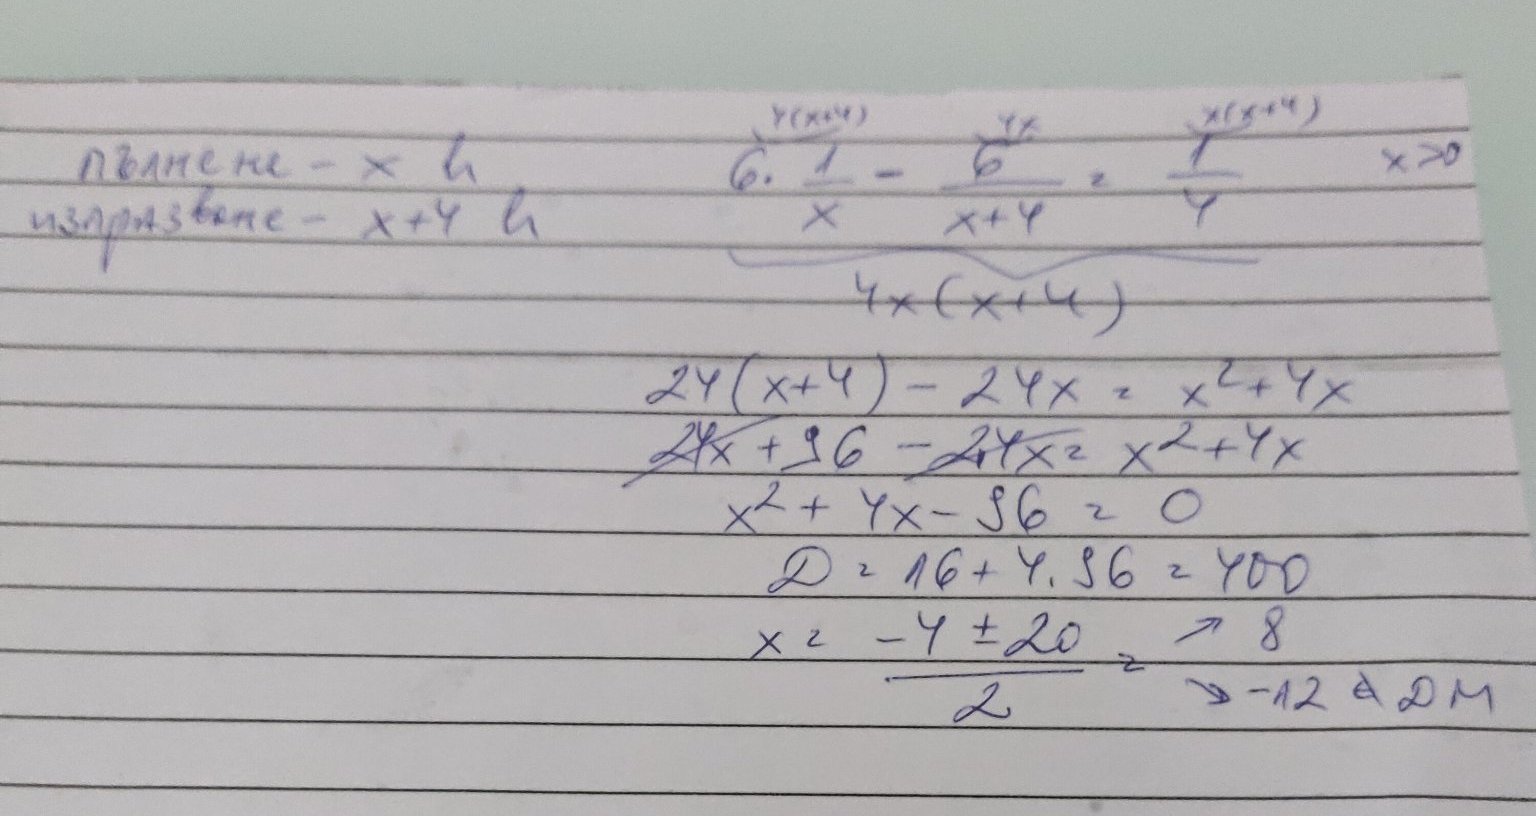 пълнене - x h
изпразване - x+4 h
4(x+4) 4x x(x+4)
6. 1/x - 6/(x+4) = 1/4 x>0
4x(x+4)
24(x+4) - 24x = x²+4x
24x + 96 - 24x = x²+4x
x² + 4x - 96 = 0
D = 16 + 4.96 = 400
x = (-4 ± 20)/2 = ↗ 8
↘ -12 ∉ ДМ